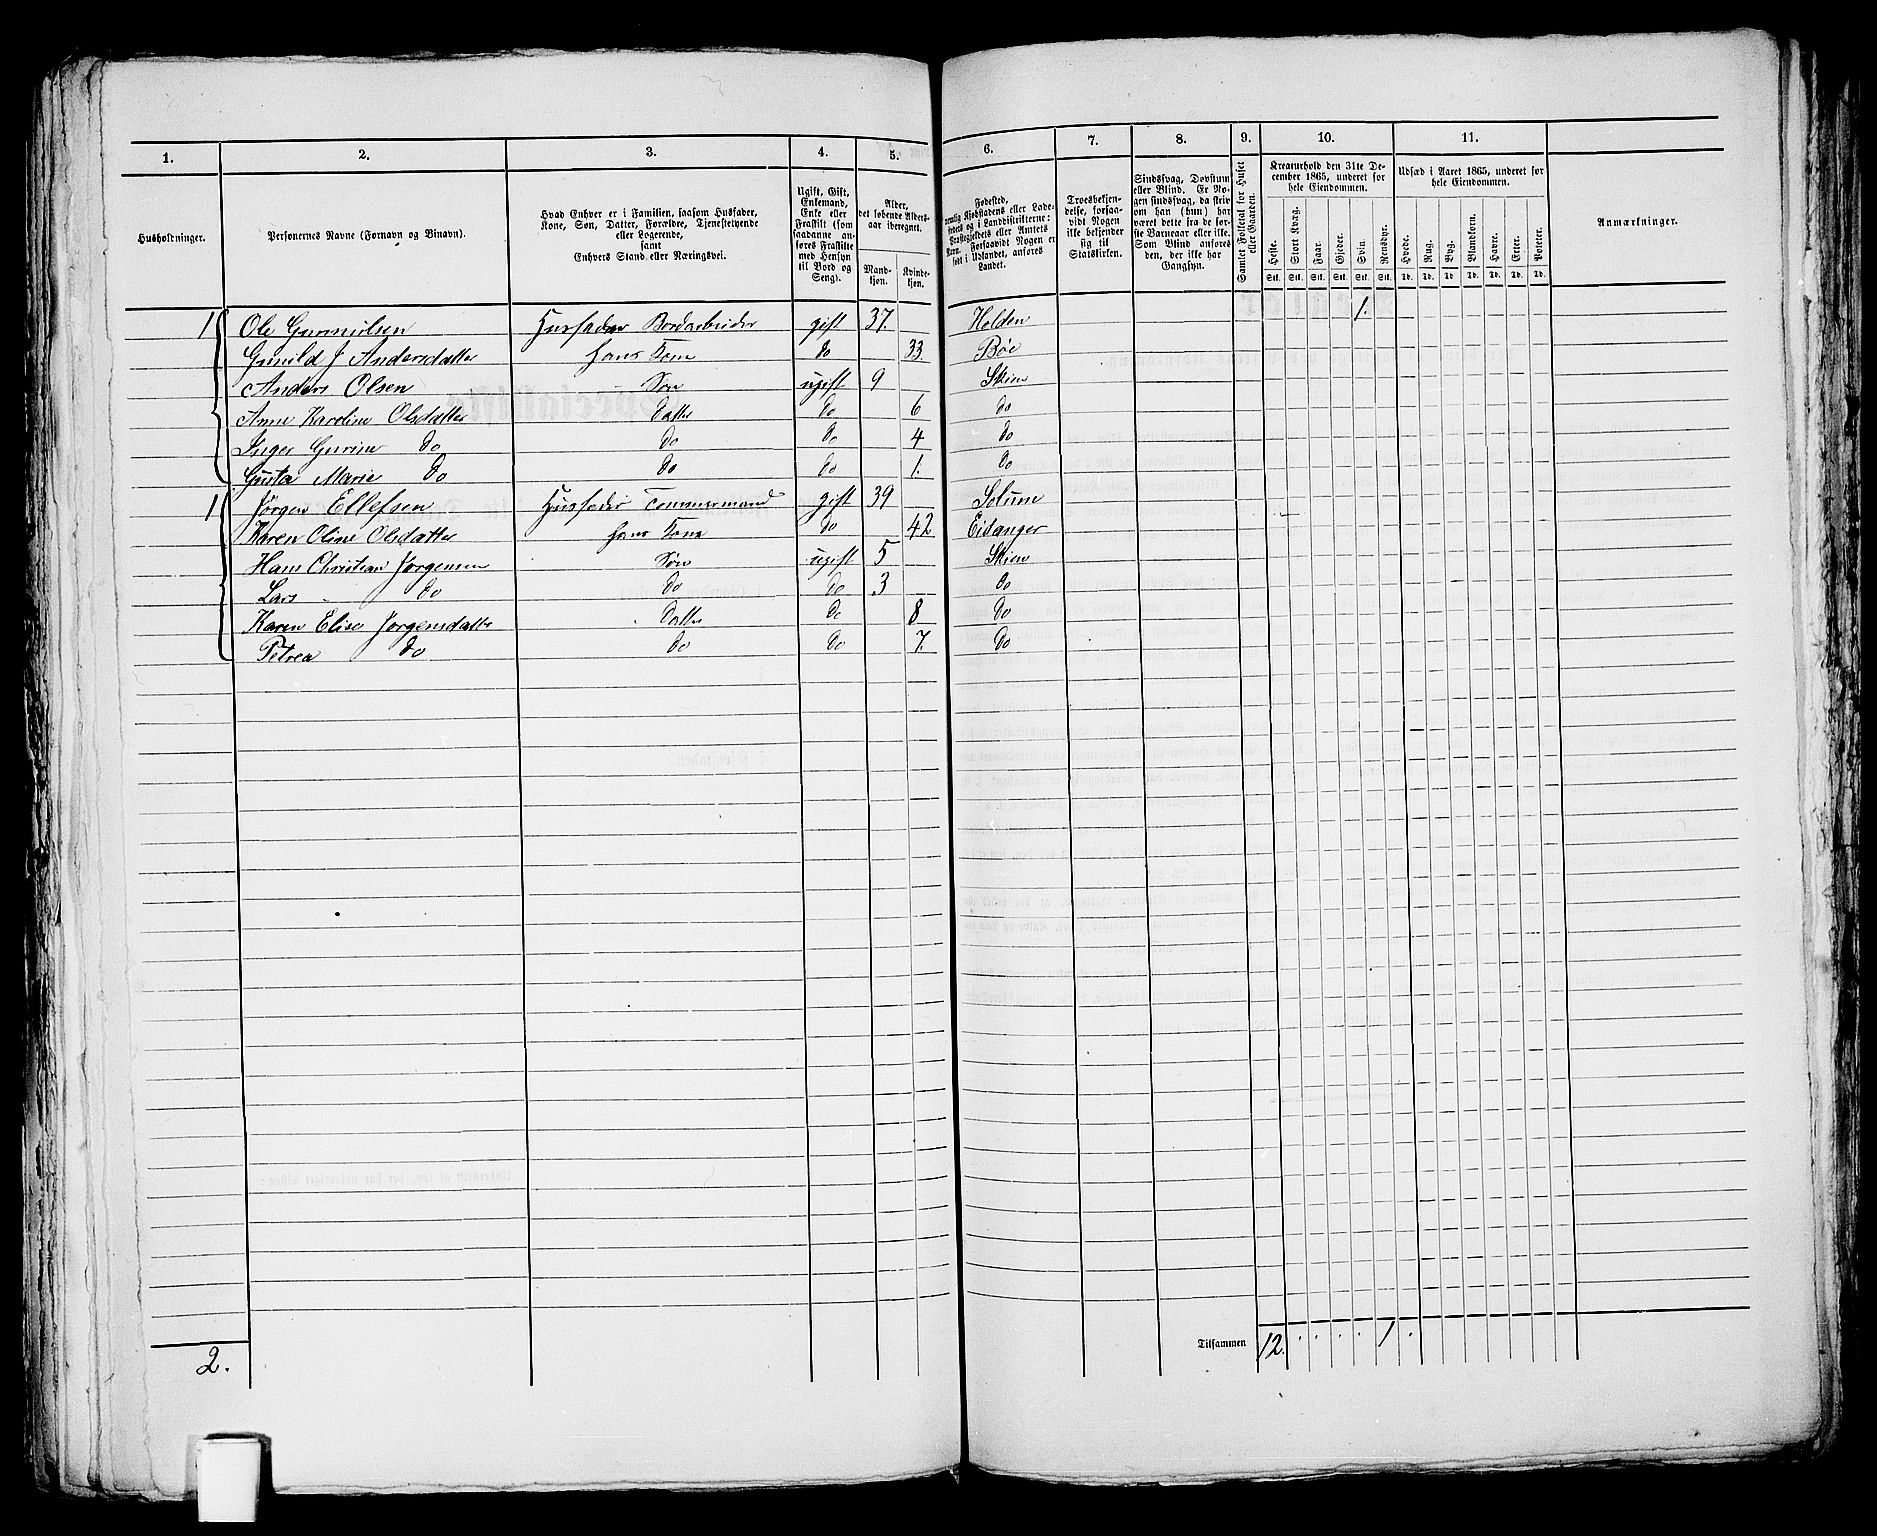 1. 2. 3. 4. 5. 6. 7. 8. 9. 10. 11.
Husholdninger.
Personernes Navne (Fornavn og Binavn).
Hvad Enhver er i Familien, saasom Husfader,
Kone, Søn, Datter, Forældre, Tjenestetyende
eller Logerende,
samt
Enhvers Stand eller Næringsvei.
Ugift, Gift,
Enkemand,
Enke eller
Fraskilt (som
saadanne an-
føres Fraskilte
med Hensyn
til Bord og
Seng).
Alder,
det løbende Alders-
aar iberegnet.
Mand-
kjøn.
Kvinde-
kjøn.
Fødested,
nemlig Kjøbstadens eller Lade-
stedets og i Landdistrikterne:
Præstegjeldets eller Amtets
Navn. Forsaavidt Nogen er
født i Udlandet, anføres
Landet.
Troesbekjen-
delse, forsaa-
vidt Nogen
ikke bekjender
sig til
Statskirken.
Sindssvag, Døvstum
eller Blind. Er No-
gen sindssvag, da skriv
om han (hun) har
været dette fra de før-
ste Barneaar eller ikke.
Som Blind anføres
den, der ikke har
Gangsyn.
Samlet Folketal for Huset
eller Gaarden.
Kreaturhold den 31te De-
cember 1865, underet for
hele Eiendommen.
Heste. Stort Kvæg. Faar. Gjeder. Svin. Rensdyr.
Stk. Stk. Stk. Stk. Stk. Stk.
Udsæd i Aaret 1865, underet for
hele Eiendommen.
Hvede. Rug. Byg. Blandkorn. Havre. Erter. Poteter.
Td. Td. Td. Td. Td. Td. Td.
Anmærkninger.
1 Ole Gunnulsen Husfader Bordarbeider gift 37. Holden 1.
Gunild J Andersdatter hans Kone do 33. Bøe
Anders Olsen Søn ugift 9 Skien
Anne Karoline Olsdatter Datter do 6 do
Inger Gurine do do do 4 do
Gusta Marie do do do 1. do
1 Jørgen Ellefsen Husfader Tømmermand gift 39 Solum
Karen Oline Olsdatter hans Kone do 42 Eidanger
Hans Christian Jørgensen Søn ugift 5 Skien
Lars do do do 3 do
Karen Elise Jørgensdatter Datter do 8 do
Petrea do do do 7. do
2. Tilsammen 12. 1